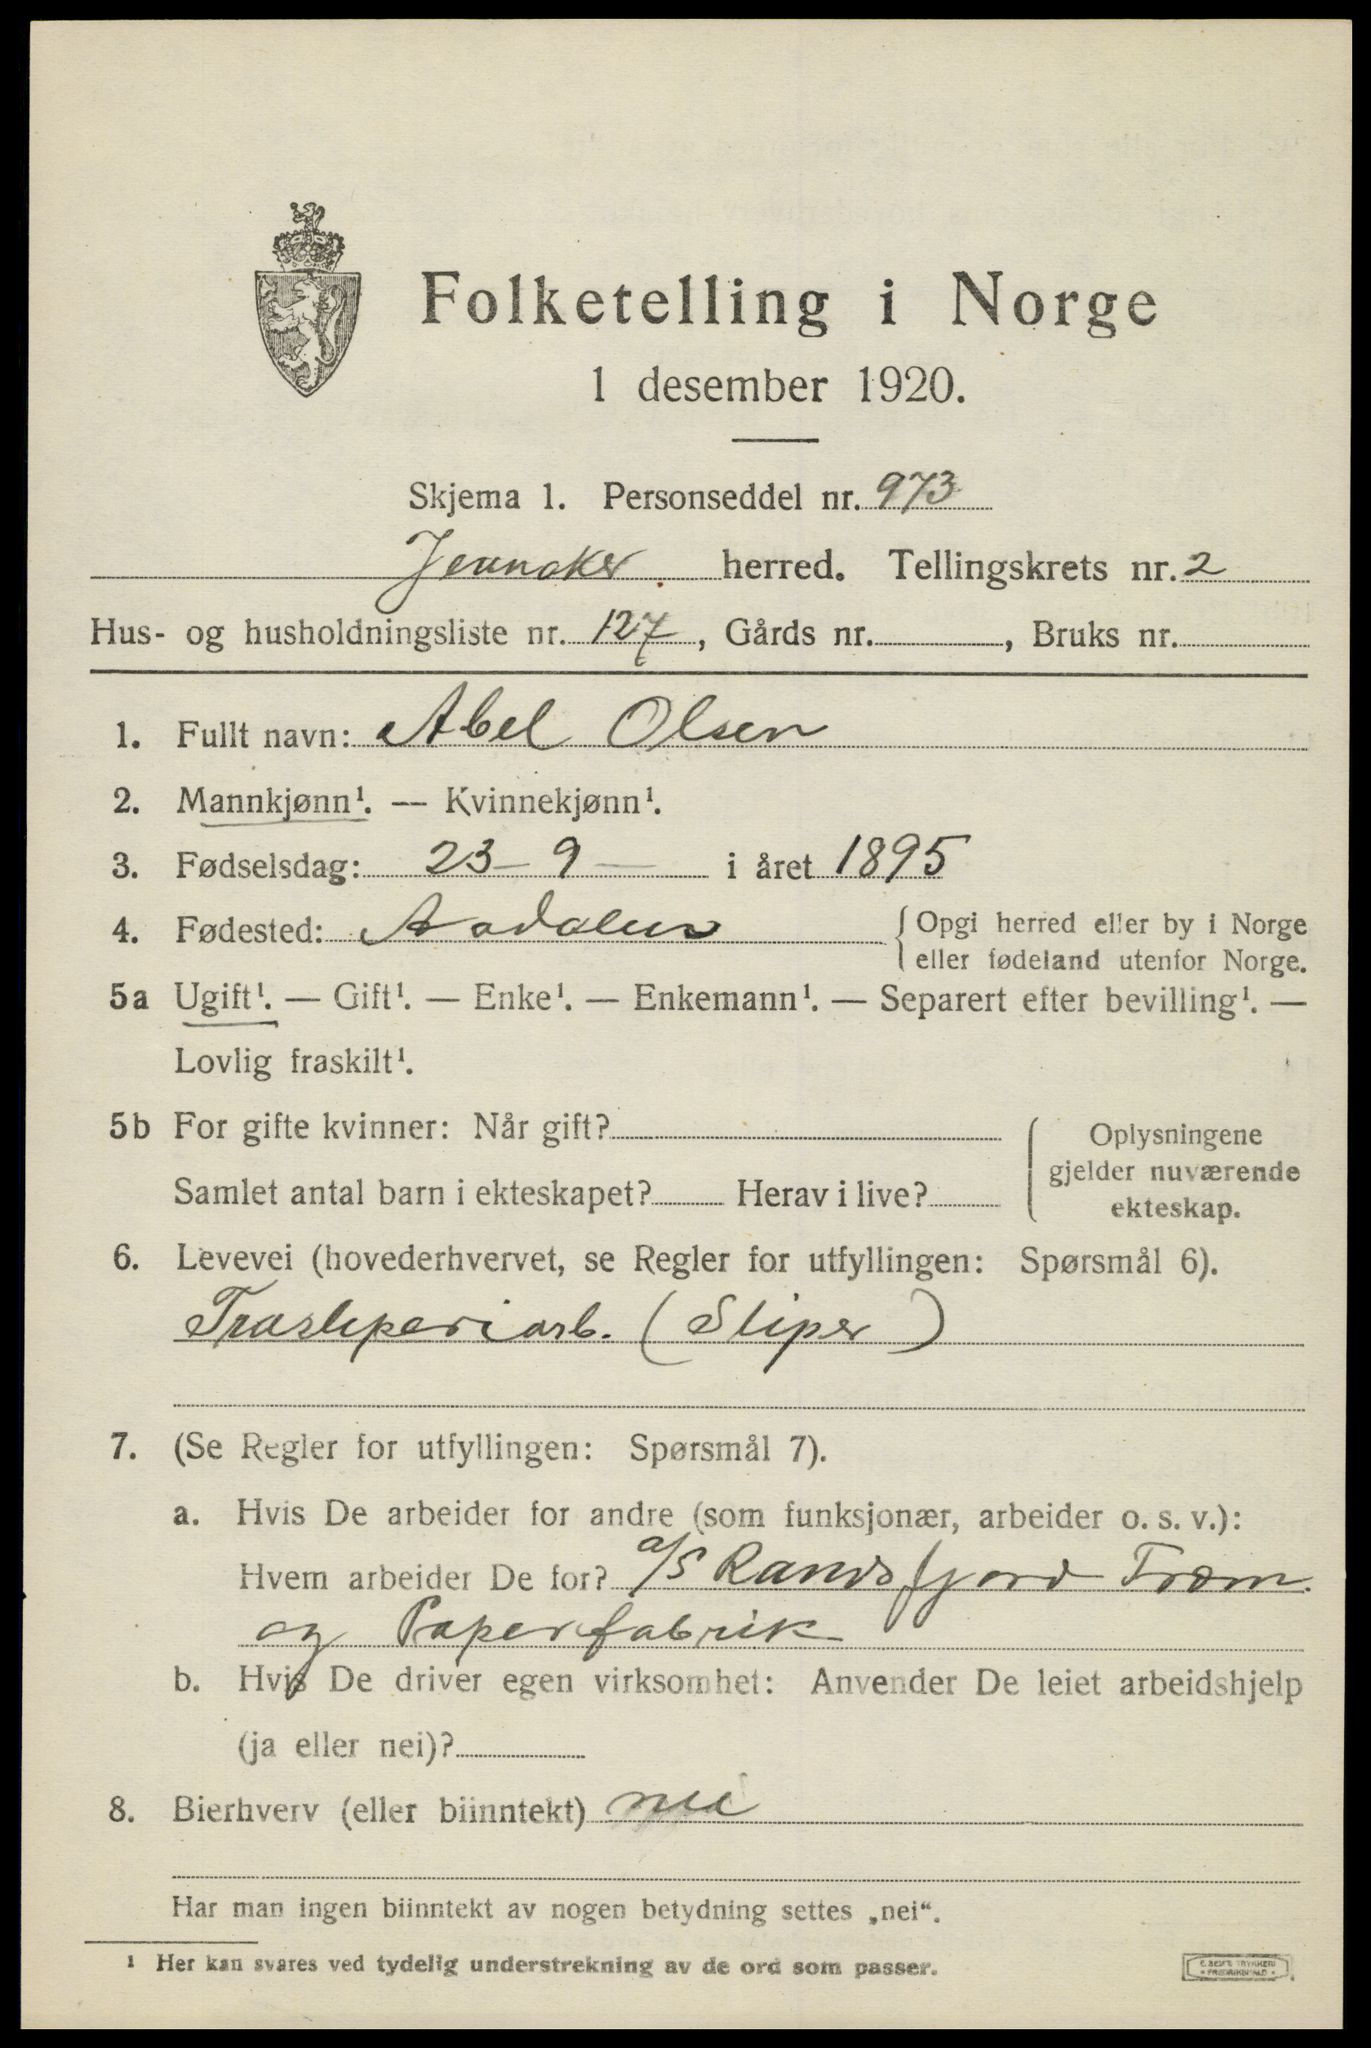 Folketelling i Norge
1 desember 1920.
Skjema 1. Personseddel nr. 973
Jevnaker herred. Tellingskrets nr. 2
Hus- og husholdningsliste nr. 127, Gårds nr. , Bruks nr.
1. Fullt navn: Abel Olsen
2. Mannkjønn¹. — Kvinnekjønn¹.
3. Fødselsdag: 23–9– i året 1895
4. Fødested: Aadalen { Opgi herred eller by i Norge
eller fødeland utenfor Norge.
5a Ugift¹. — Gift¹. — Enke¹. — Enkemann¹. — Separert efter bevilling¹. —
Lovlig fraskilt¹.
5b For gifte kvinner: Når gift?
Samlet antal barn i ekteskapet? Herav i live?
Oplysningene
gjelder nuværende
ekteskap.
6. Levevei (hovederhvervet, se Regler for utfyllingen: Spørsmål 6).
Trasliperiarb. (Sliper)
7. (Se Regler for utfyllingen: Spørsmål 7).
a. Hvis De arbeider for andre (som funksjonær, arbeider o. s. v.):
Hvem arbeider De for? a/s Randsfjord Træm.
og Paperfabrik
b. Hvis De driver egen virksomhet: Anvender De leiet arbeidshjelp
(ja eller nei)?
8. Bierhverv (eller biinntekt) nei
Har man ingen biinntekt av nogen betydning settes „nei“.
¹ Her kan svares ved tydelig understrekning av de ord som passer.